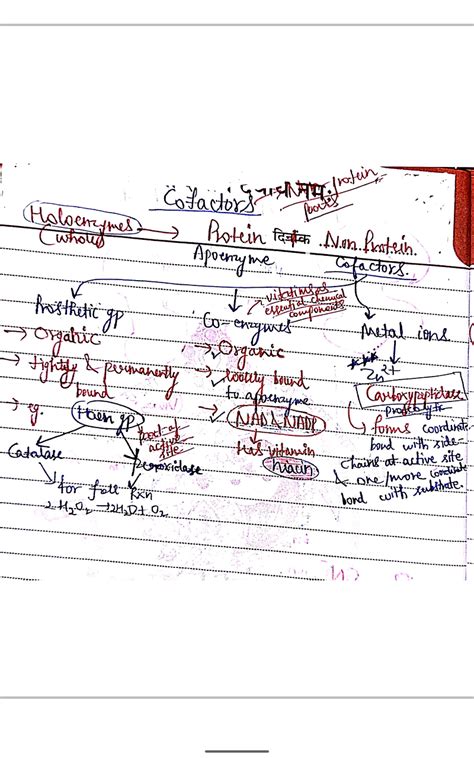 Cofactors
protein
parts
Holoenzymes → Protein दिनांक Non Protein.
(whole)
Apoenzyme
Cofactors.
Prosthetic gp
→ Organic
→ tightly & permanently
bound
→ eg. Haem gp
part of
active
site
Catalase
peroxidase
for foll Rxn
2 H2O2 → 2H2O + O2
Co-enzymes
vitamins
essential chemical
components
→ Organic
→ loosely bound
to apoenzyme
→ NAD & NADP
Has vitamin
niacin
Metal ions
Zn2+
Carboxypeptidase
proteolytic
forms coordinate
bond with side-
chains at active site
& one/more coordinate
bond with substrate.